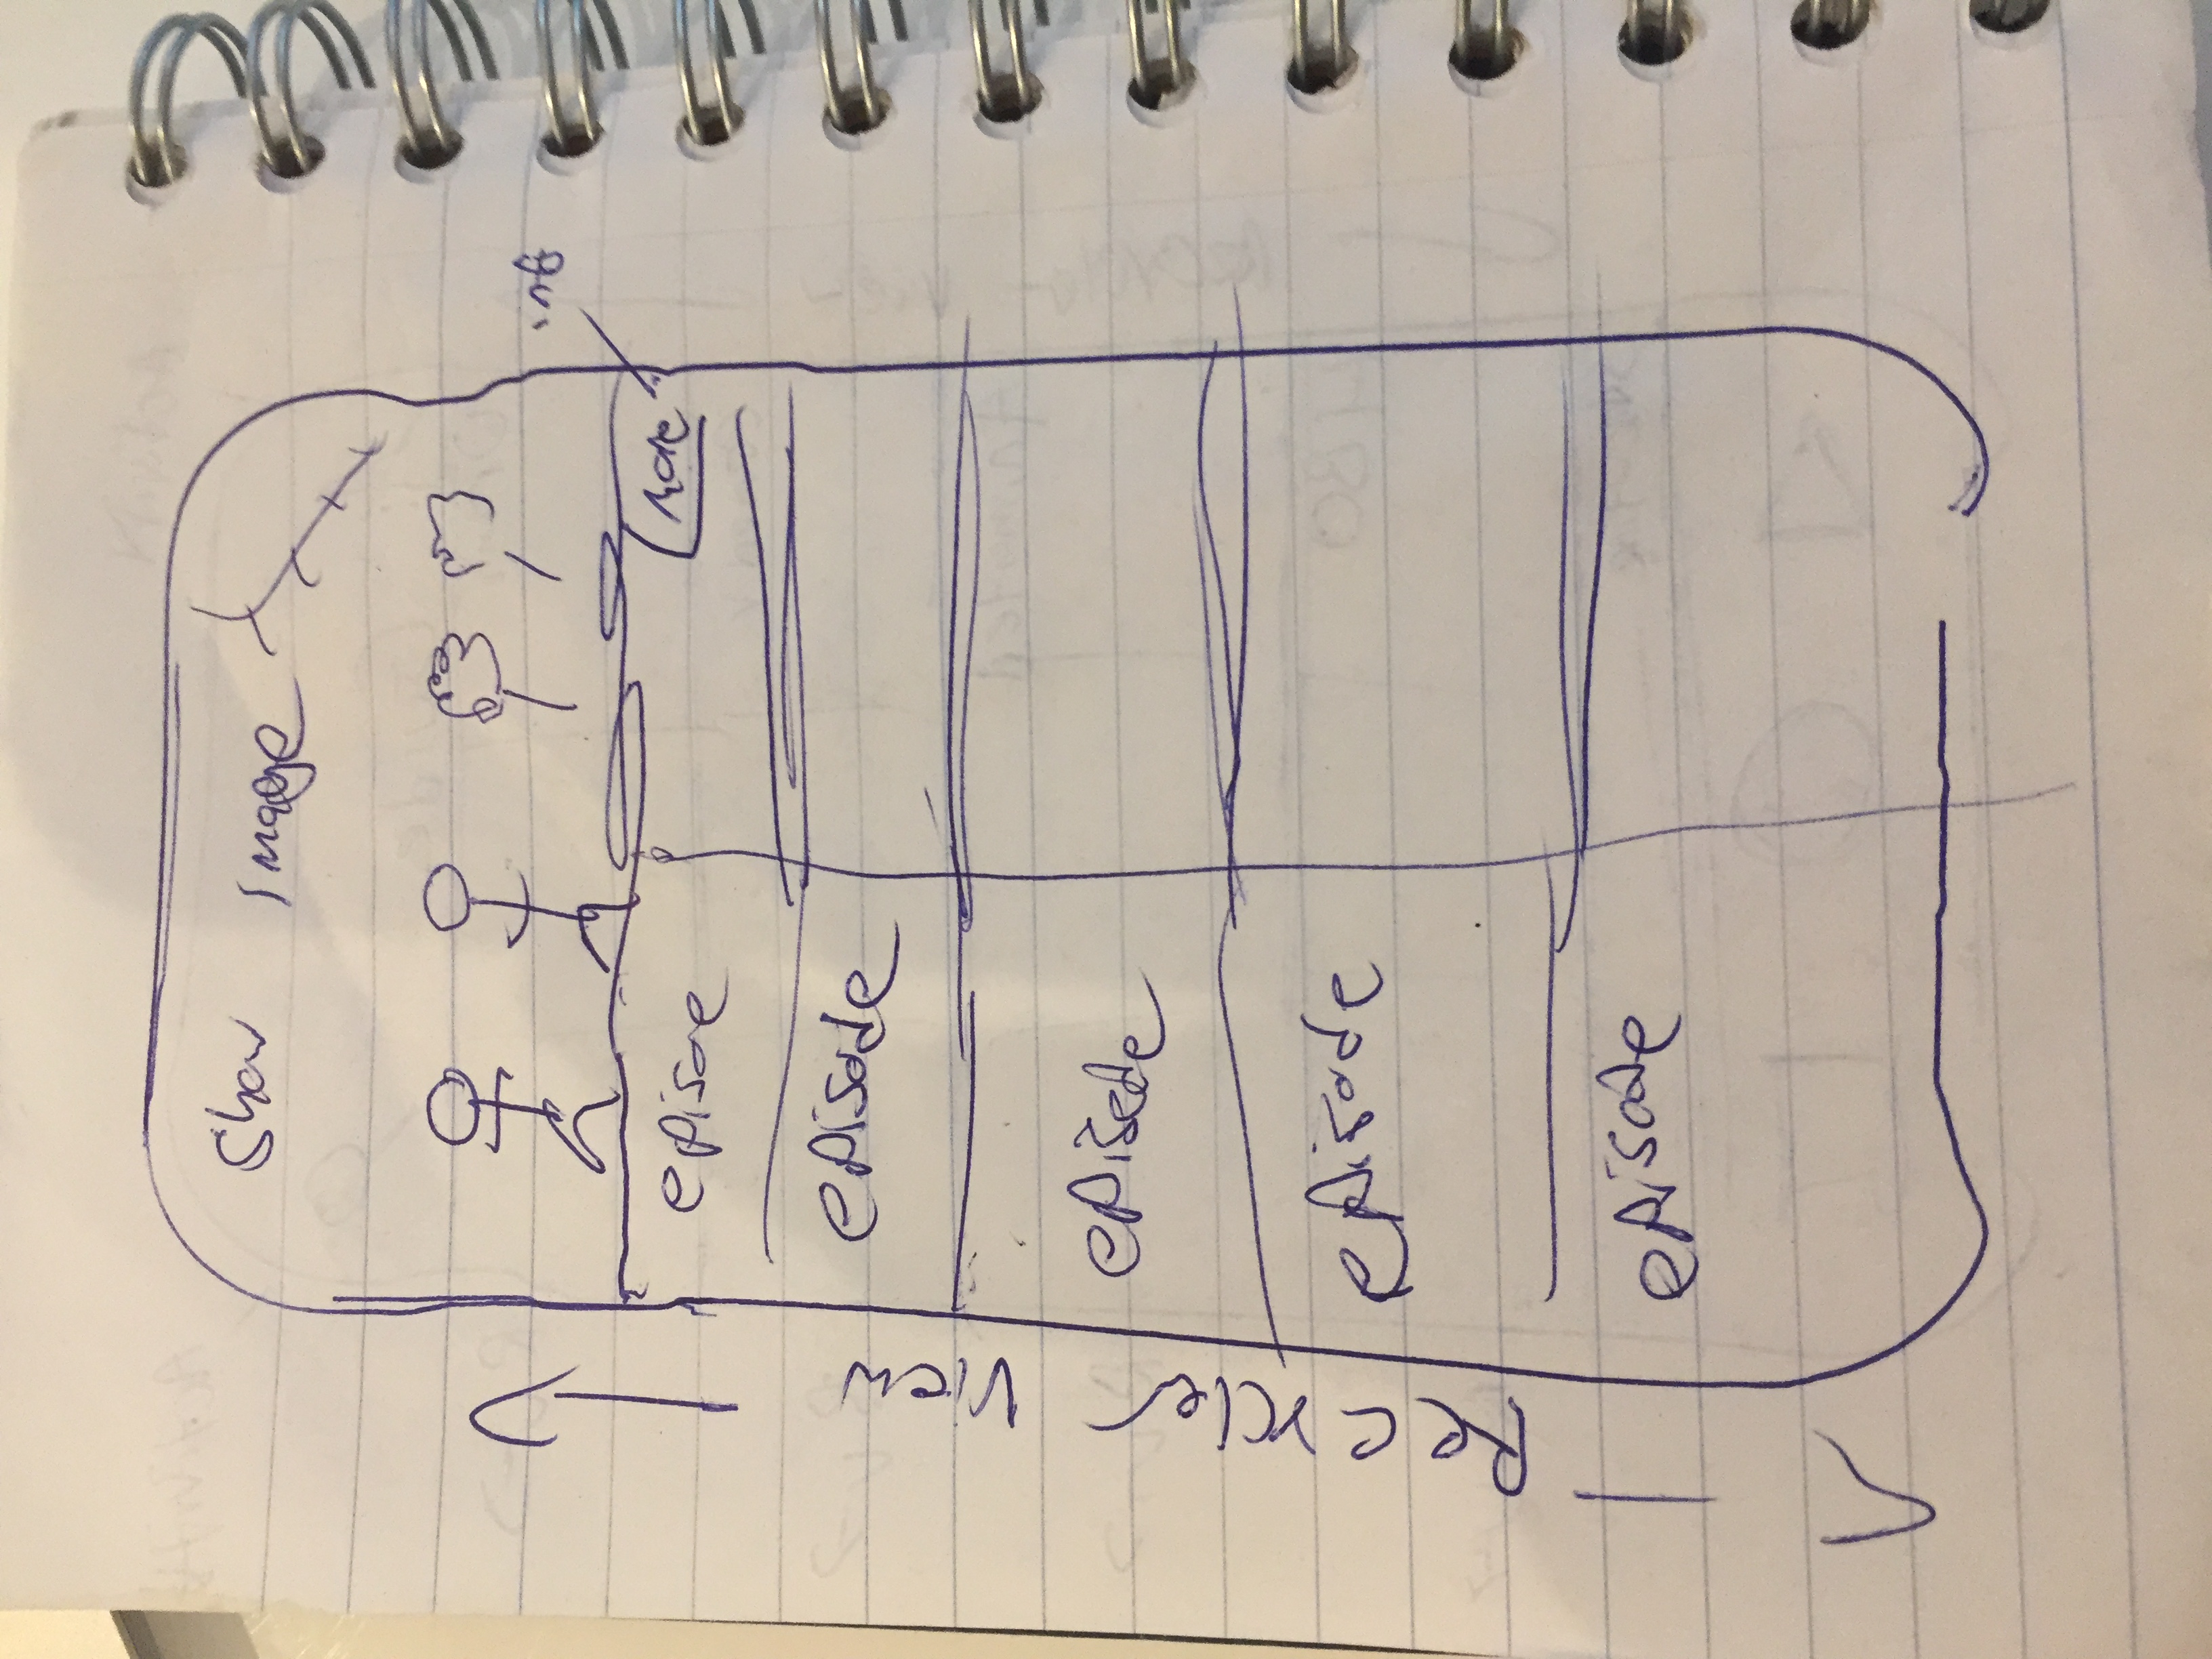 Show image
info
episoe
more
episode
episode
episode
episode
Recycler view